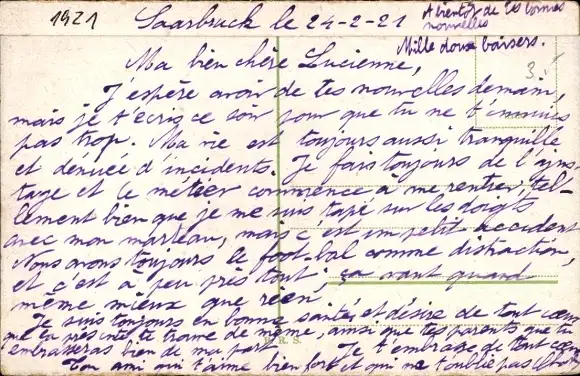 1921
Saarbruck le 24-2-21
A bientôt de tes bonnes
nouvelles
Mille doux baisers.
3
Ma bien chère Lucienne,
J'espère avoir de tes nouvelles demain,
mais je t'écris ce soir pour que tu ne t'ennuies
pas trop. Ma vie est toujours aussi tranquille
et dénuée d'incidents. Je fais toujours de l'ajus-
tage et le métier commence à me rentrer, tel-
lement bien que je me suis tapé sur les doigts
avec mon marteau, mais c'est un petit accident
Nous avons toujours le foot-bal comme distraction,
et c'est à peu près tout; ça vaut quand
même mieux que rien
Je suis toujours en bonne santé, et désire de tout coeur
que la présente te trouve de même, ainsi que tes parents que tu
embrasseras bien de ma part. Je t'embrasse de tout coeur
Ton ami qui t'aime bien fort et qui ne t'oublie pas
R. S.